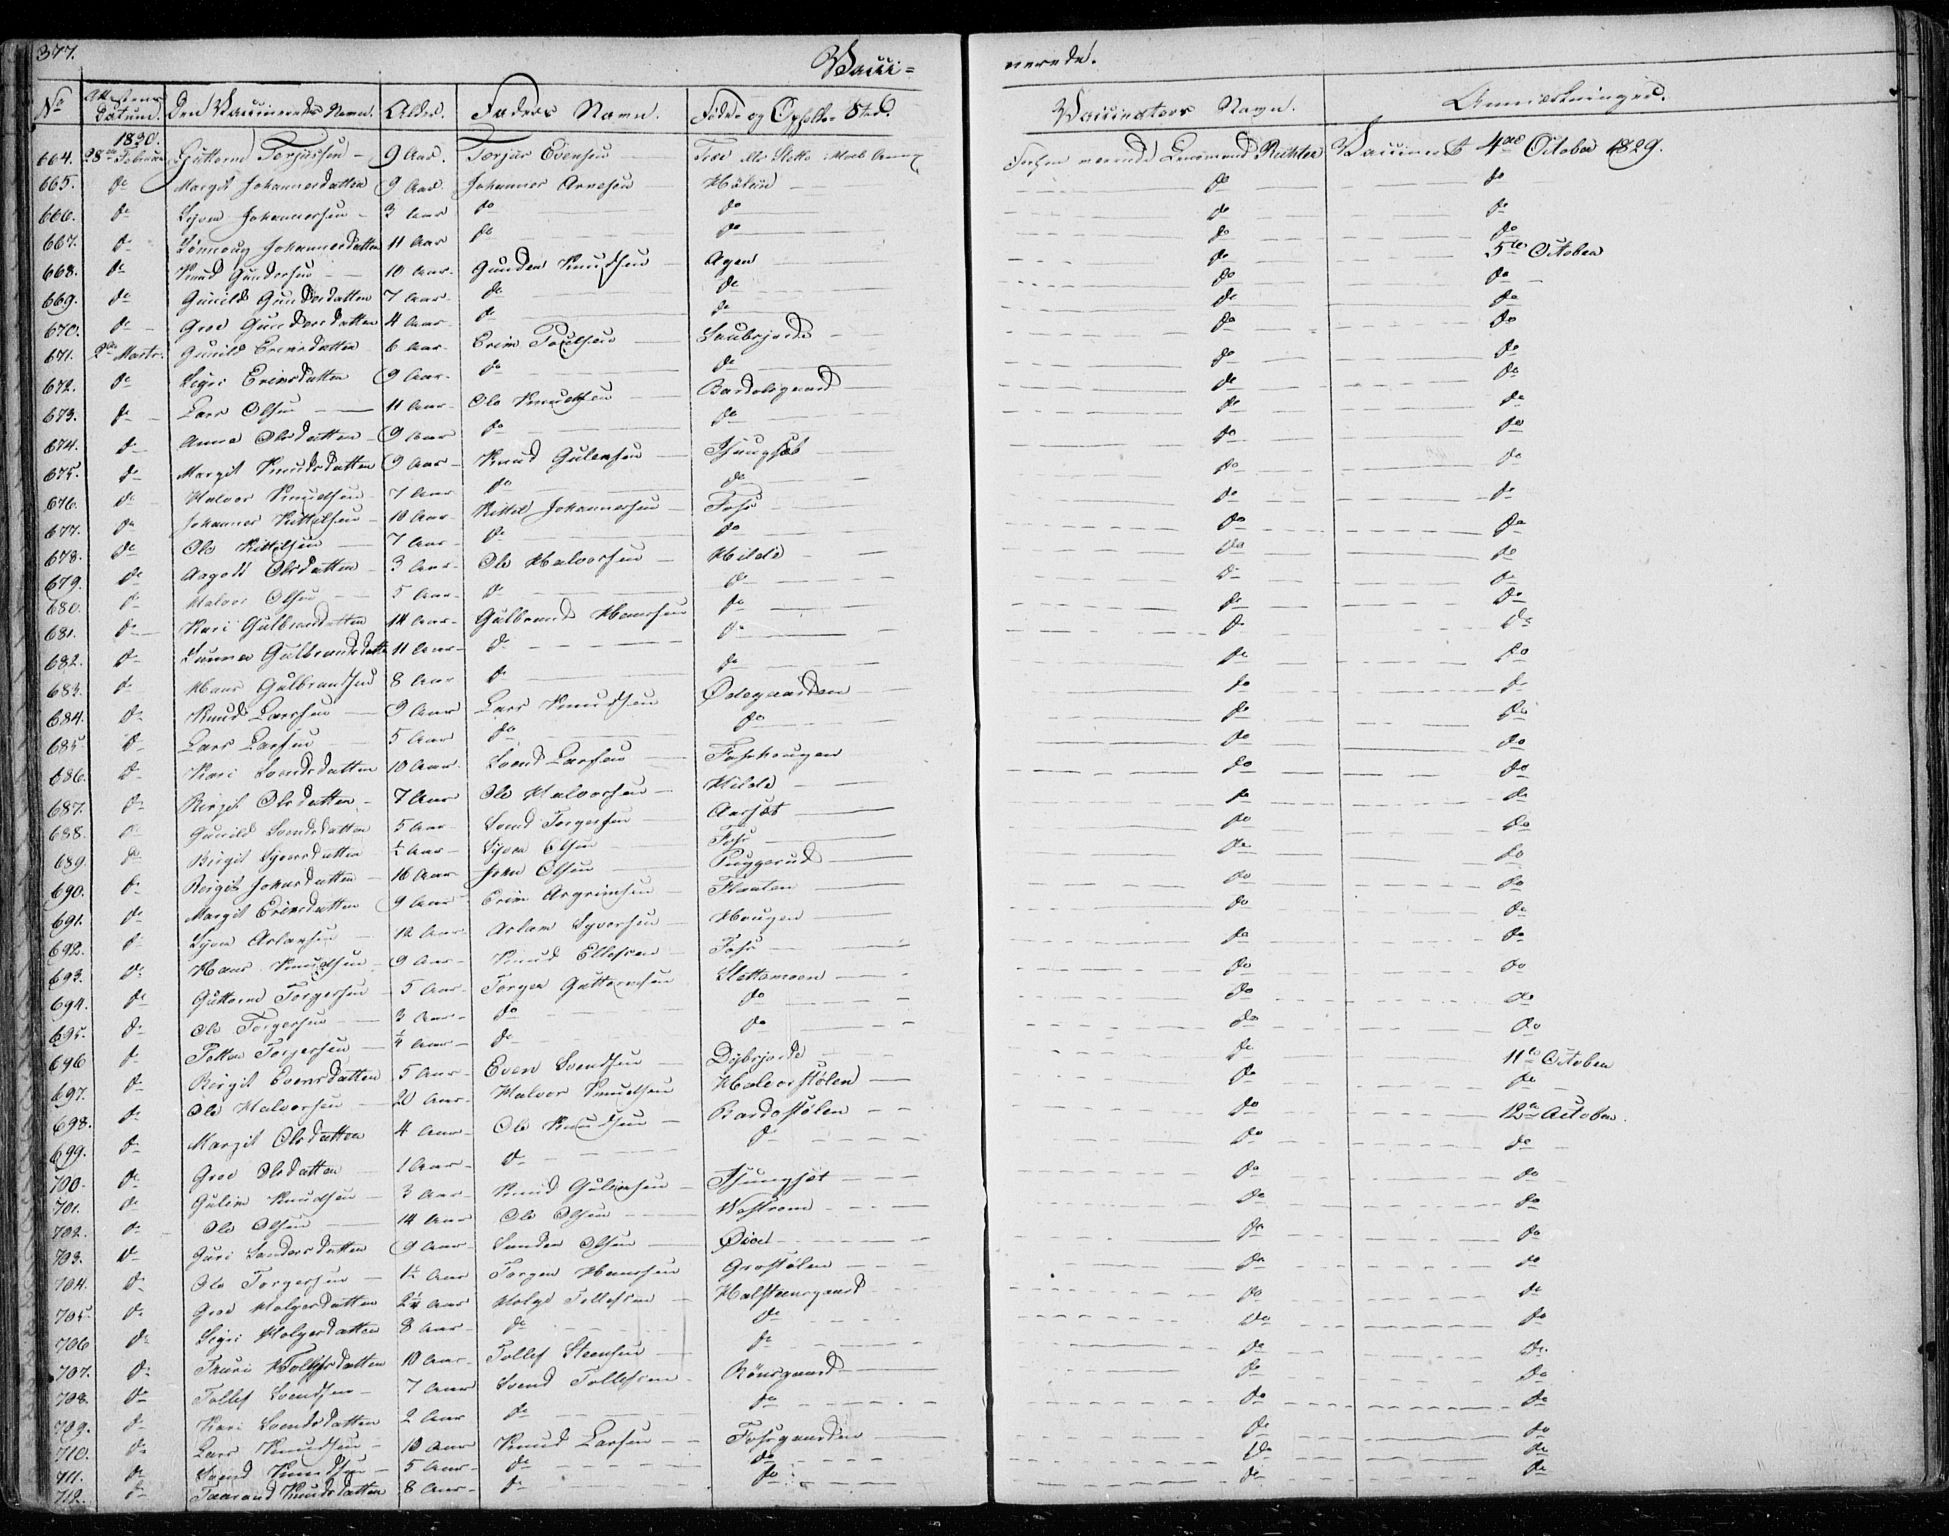 377. Vacci= nerede.
No Attestens Datum. Den Vaccineredes Navn. Alder. Faders Navn. Føde- og Opholds-Sted. Vaccinateurs Navn. Anmærkninger.
1830.
664. 28de Februar Guttorm Torjussen 9 Aar. Torjus Evensen Lensmand Richter Vaccineret 4de October 1829.
665. do Margit Johannesdatter 9 Aar. Johannes Arnesen do do
666. do Syver Johannessen 3 Aar do do do do
667. do Lønnoug Johannesdatter 11 Aar do do do do
668. do Knud Gundersen 10 Aar. Gunder Knudsen Agen do 5te October
669. do Gunild Gundersdatter 7 Aar. do do do do
670. do Groe Gundersdatter 4 Aar. do do do do
671. 2de Marts. Gunild Erimsdatter 6 Aar. Erim Poulsen do do
672. do Sigri Erimsdatter 9 Aar. do do do do
673. do Lars Olsen 11 Aar Ole Knudsen Bardolsgaard do do
674. do Anne Olsdatter 9 Aar do do do do
675. do Margit Knudsdatter 9 Aar Knud Guliksen do do
676. do Halvor Knudsen 7 Aar do do do do
677. do Johannes Kittelsen 10 Aar Kittel Johannessen Foss do do
678. do Ole Kittelsen 7 Aar do do do do
679. do Aagodt Olsdatter 3 Aar Ole Halvorsen Hilde do do
680. do Halvor Olsen 5 Aar do do do do
681. do Kari Gulbrandsdatter 14 Aar Gulbrand Hansen do do do
682. do Gunner Gulbrandsdatter 11 Aar do do do do
683. do Hans Gulbrandsen 8 Aar do do do do
684. do Knud Larssen 9 Aar Lars Knudsen Ødegaarden do do
685. do Lars Larsen 5 Aar do do do do
686. do Kari Svendsdatter 10 Aar Svend Larsen Fosshougen do do
687. do Birgit Olsdatter 7 Aar Ole Halvorsen Hilde do do
688. do Gunild Svendsdatter 5 Aar Svend Torgersen Aarset do do
689. do Birgit Syversdatter ½ Aar Syver Olsen Foss do do
690. do Birgit Johnsdatter 16 Aar John Olsen Puggerud do do
691. do Margit Erimsdatter 9 Aar Erim Asgrimsen Flaaten do do
692. do Syver Aslaksen 12 Aar Aslak Syversen Hougen do do
693. do Hans Knudsen 9 Aar Knud Ellefsen Foss do do
694. do Guttorm Torgersen 5 Aar Torger Guttormsen Slettemoen do do
695. do Ole Torgersen 3 Aar do do do do
696 do Petter Torgersen ¼ Aar do do do do
697. do Birgit Evensdatter 5 Aar Even Svendsen Dybsjorde do 11te October
698. do Ole Halvorsen 20 Aar Halvor Knudsen Halvorstølen do do
699. do Margit Olsdatter 4 Aar Ole Knudsen Bardostølen do 12te October.
700. do Groe Olsdatter 1 Aar do do do do
701. do Gulik Knudsen 3 Aar Knud Guliksen do do
702. do Ole Olsen 14 Aar Ole Olsen do do
703. do Guri Sandersdatter 9 Aar Sander Olsen Øien do do
704. do Ole Torgersen 1½ Aar Torger Hansen Grostølen do do
705 do Groe Holgersdatter 2¼ Aar Holge Tollefsen Halstensgaard do do
706 do Sigri Holgersdatter 8 Aar do do do do
707. do Thuri Tollefsdatter 10 Aar Tollef Steensen do do do
708. do Tollef Svendsen 7 Aar Svend Tollefsen Rønsgaard do do
709. do Kari Svendsdatter 2 Aar do do do do
710. do Lars Knudsen 10 Aar Knud Larsen Fossgaarden do do
711. do Svend Knudsen 5 Aar do do do do
712. do Taarand Knudsdatter 8 Aar do do do do